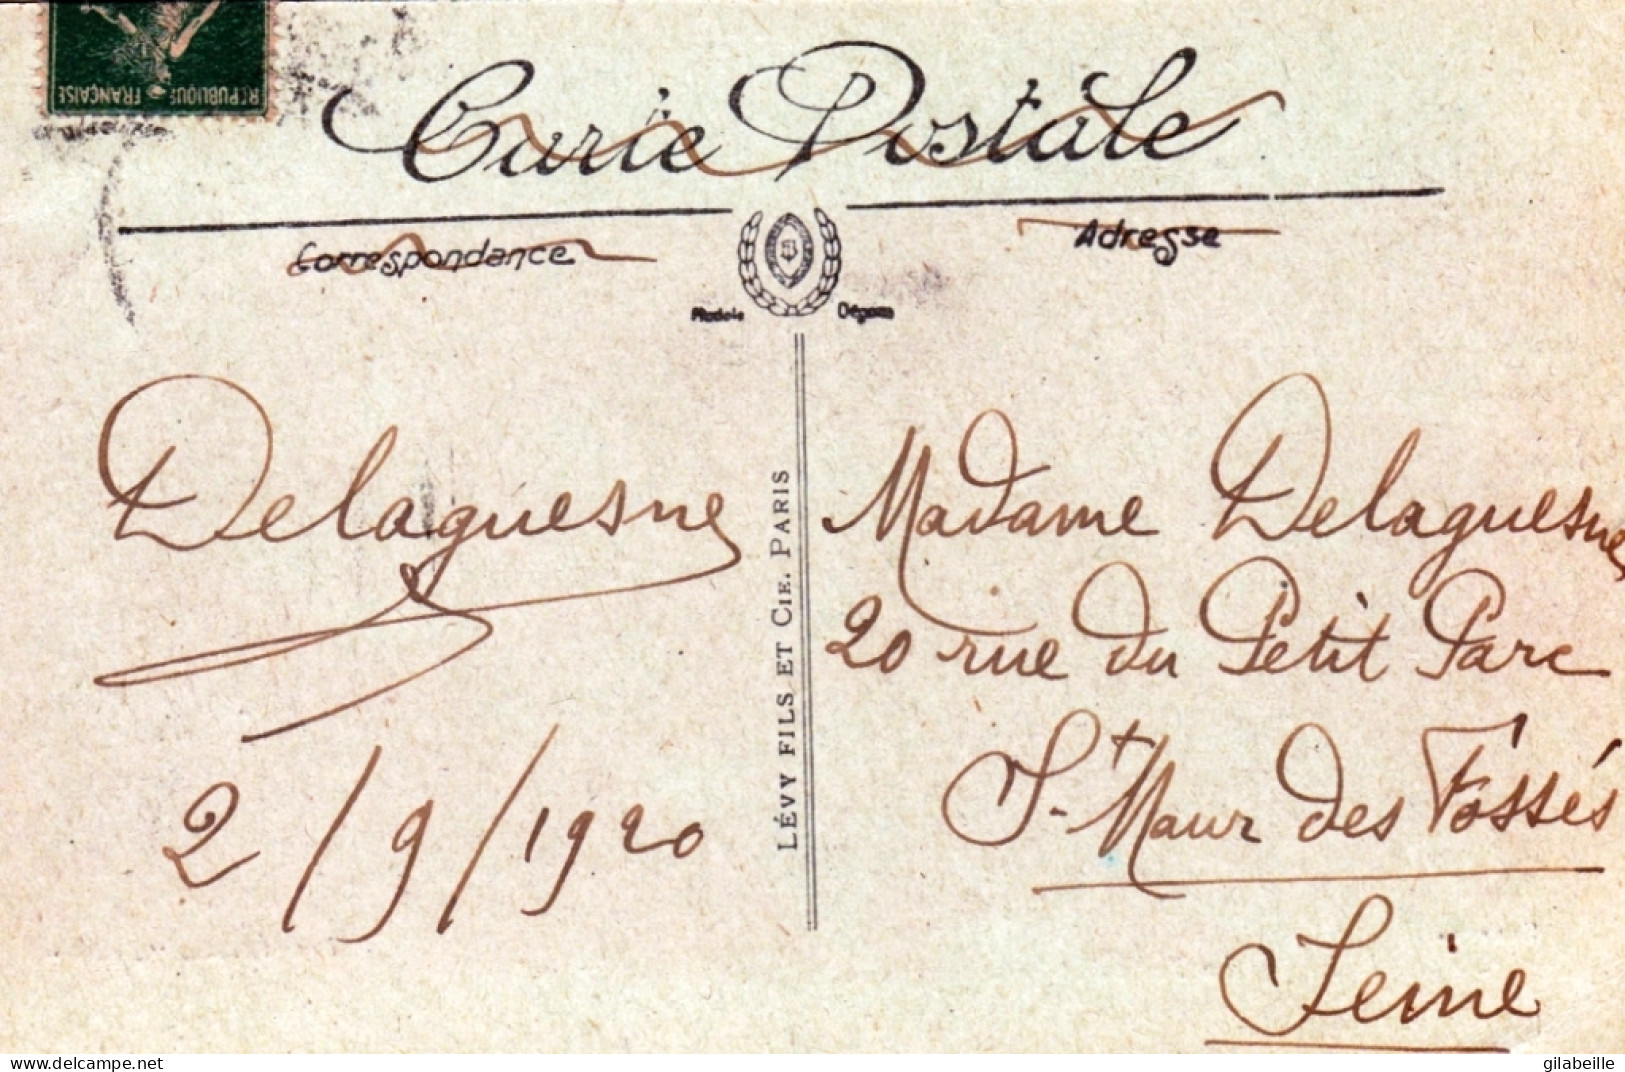 REPUBLIQUE FRANÇAISE
Carte Postale
Correspondance
Adresse
Modèle Déposé
Delaguesne
2/9/1920
LÉVY FILS ET CIE. PARIS
Madame Delaguesne
20 rue du Petit Parc
St Maur des Fossés
Seine
delcampe.net
gilabeille